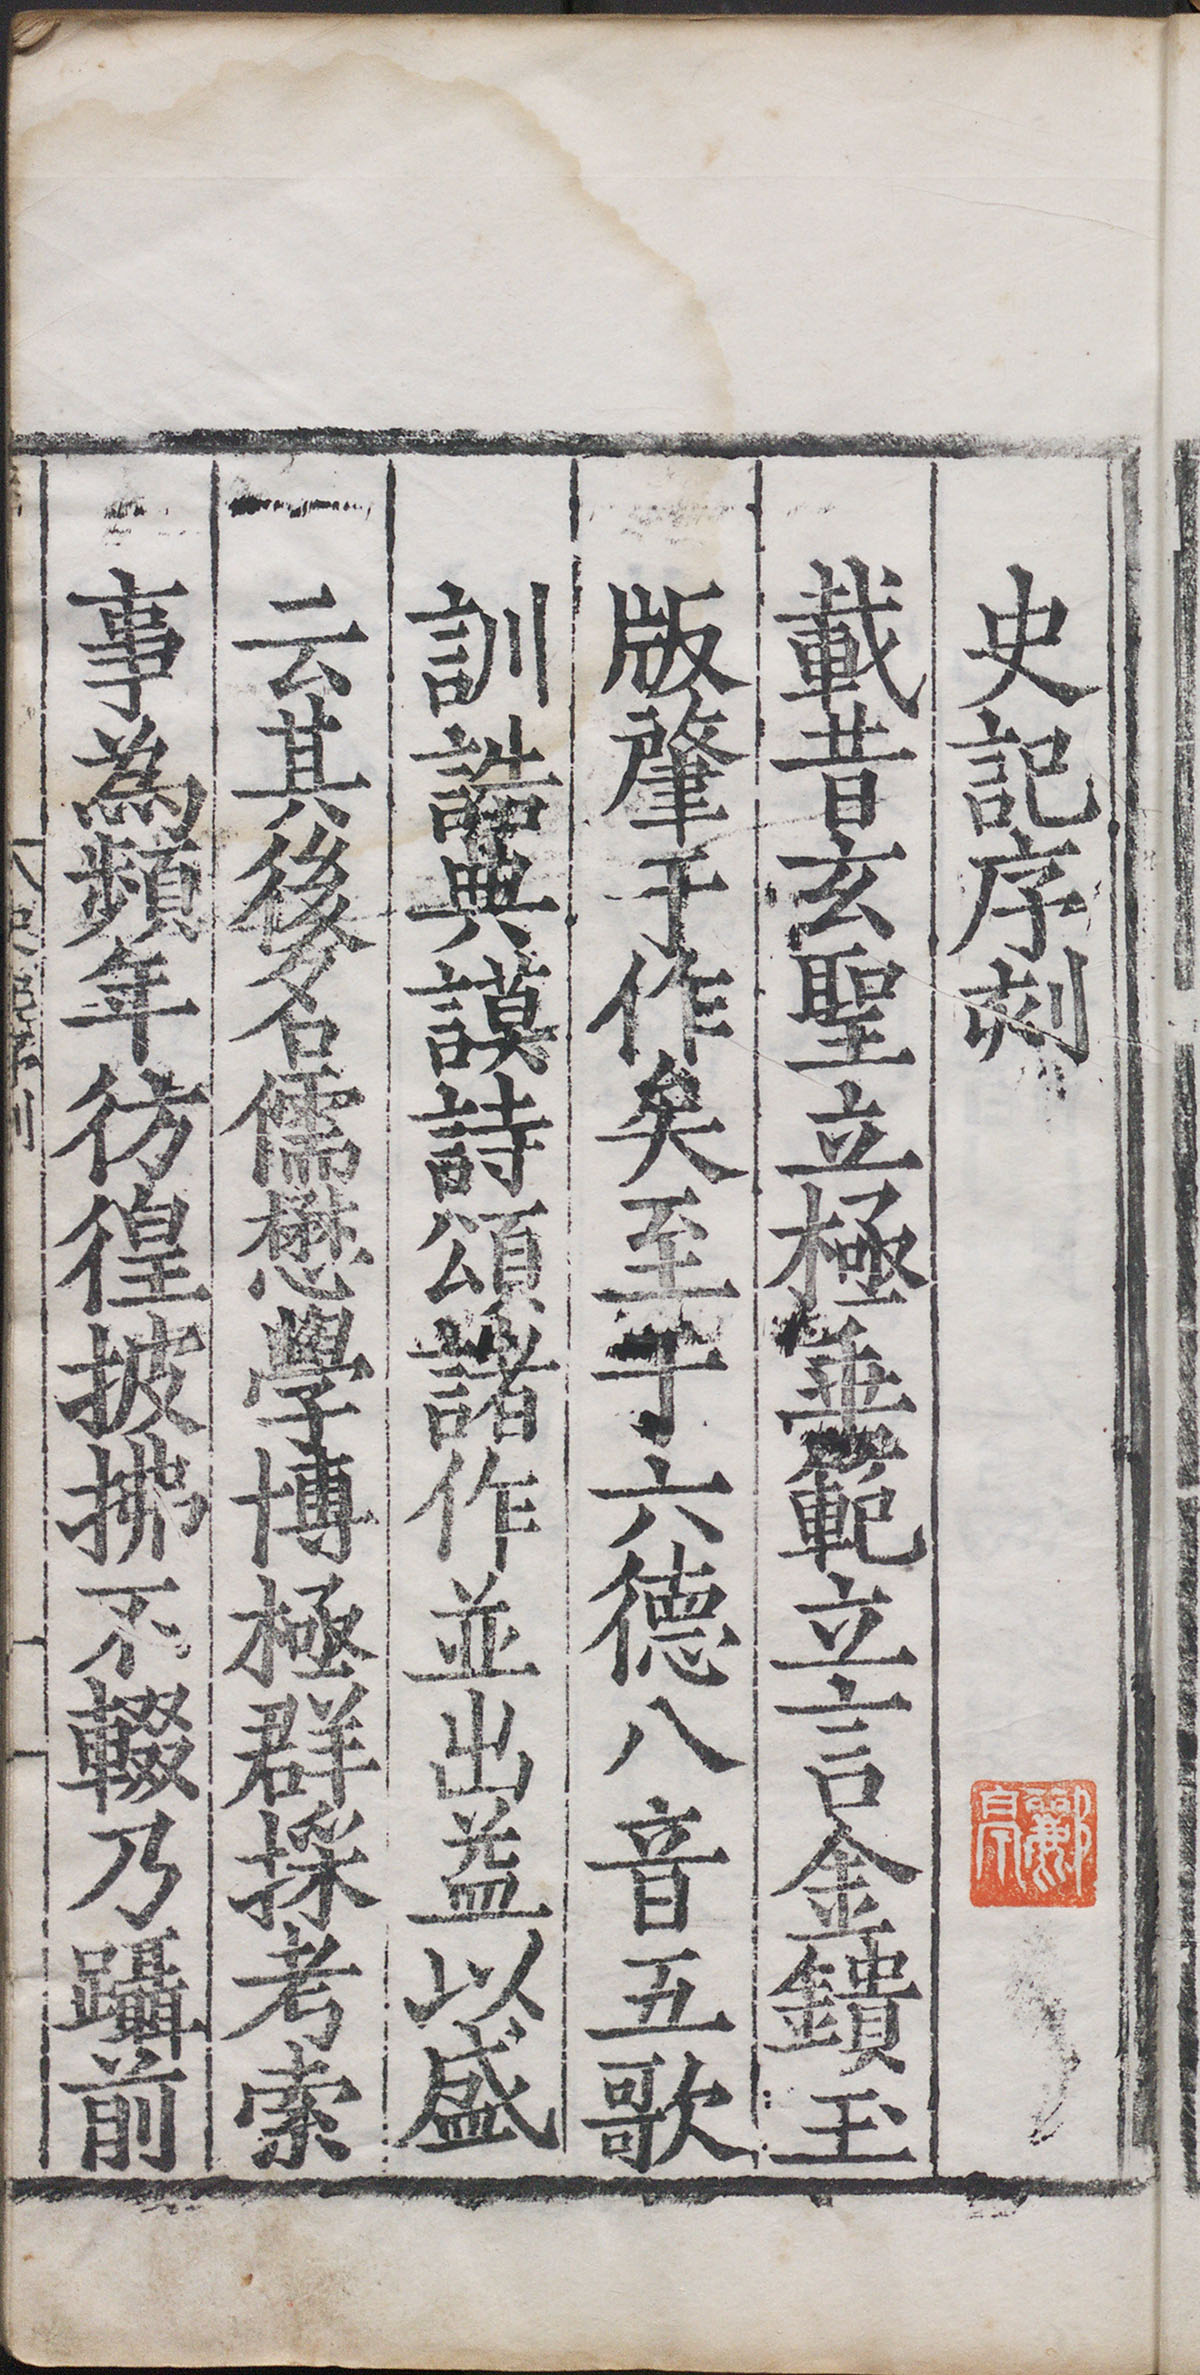 史記序刻
載昔玄聖立極垂範立言金鐀玉
版肇于作矣至于六德八音五歌
訓誥典謨詩頌諸作並出益以盛
云其後名儒懋學博極群採考索
事為頻年彷徨披拂不輟乃躡前